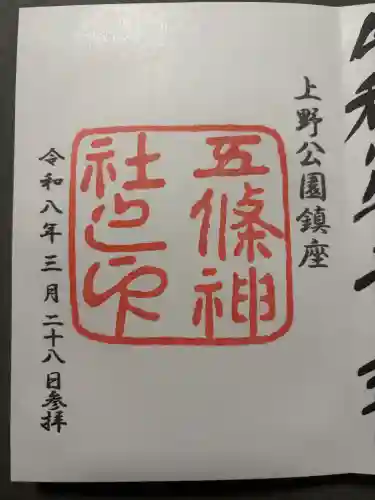 上野公園鎮座
五條神
社之印
令和八年三月二十八日参拝